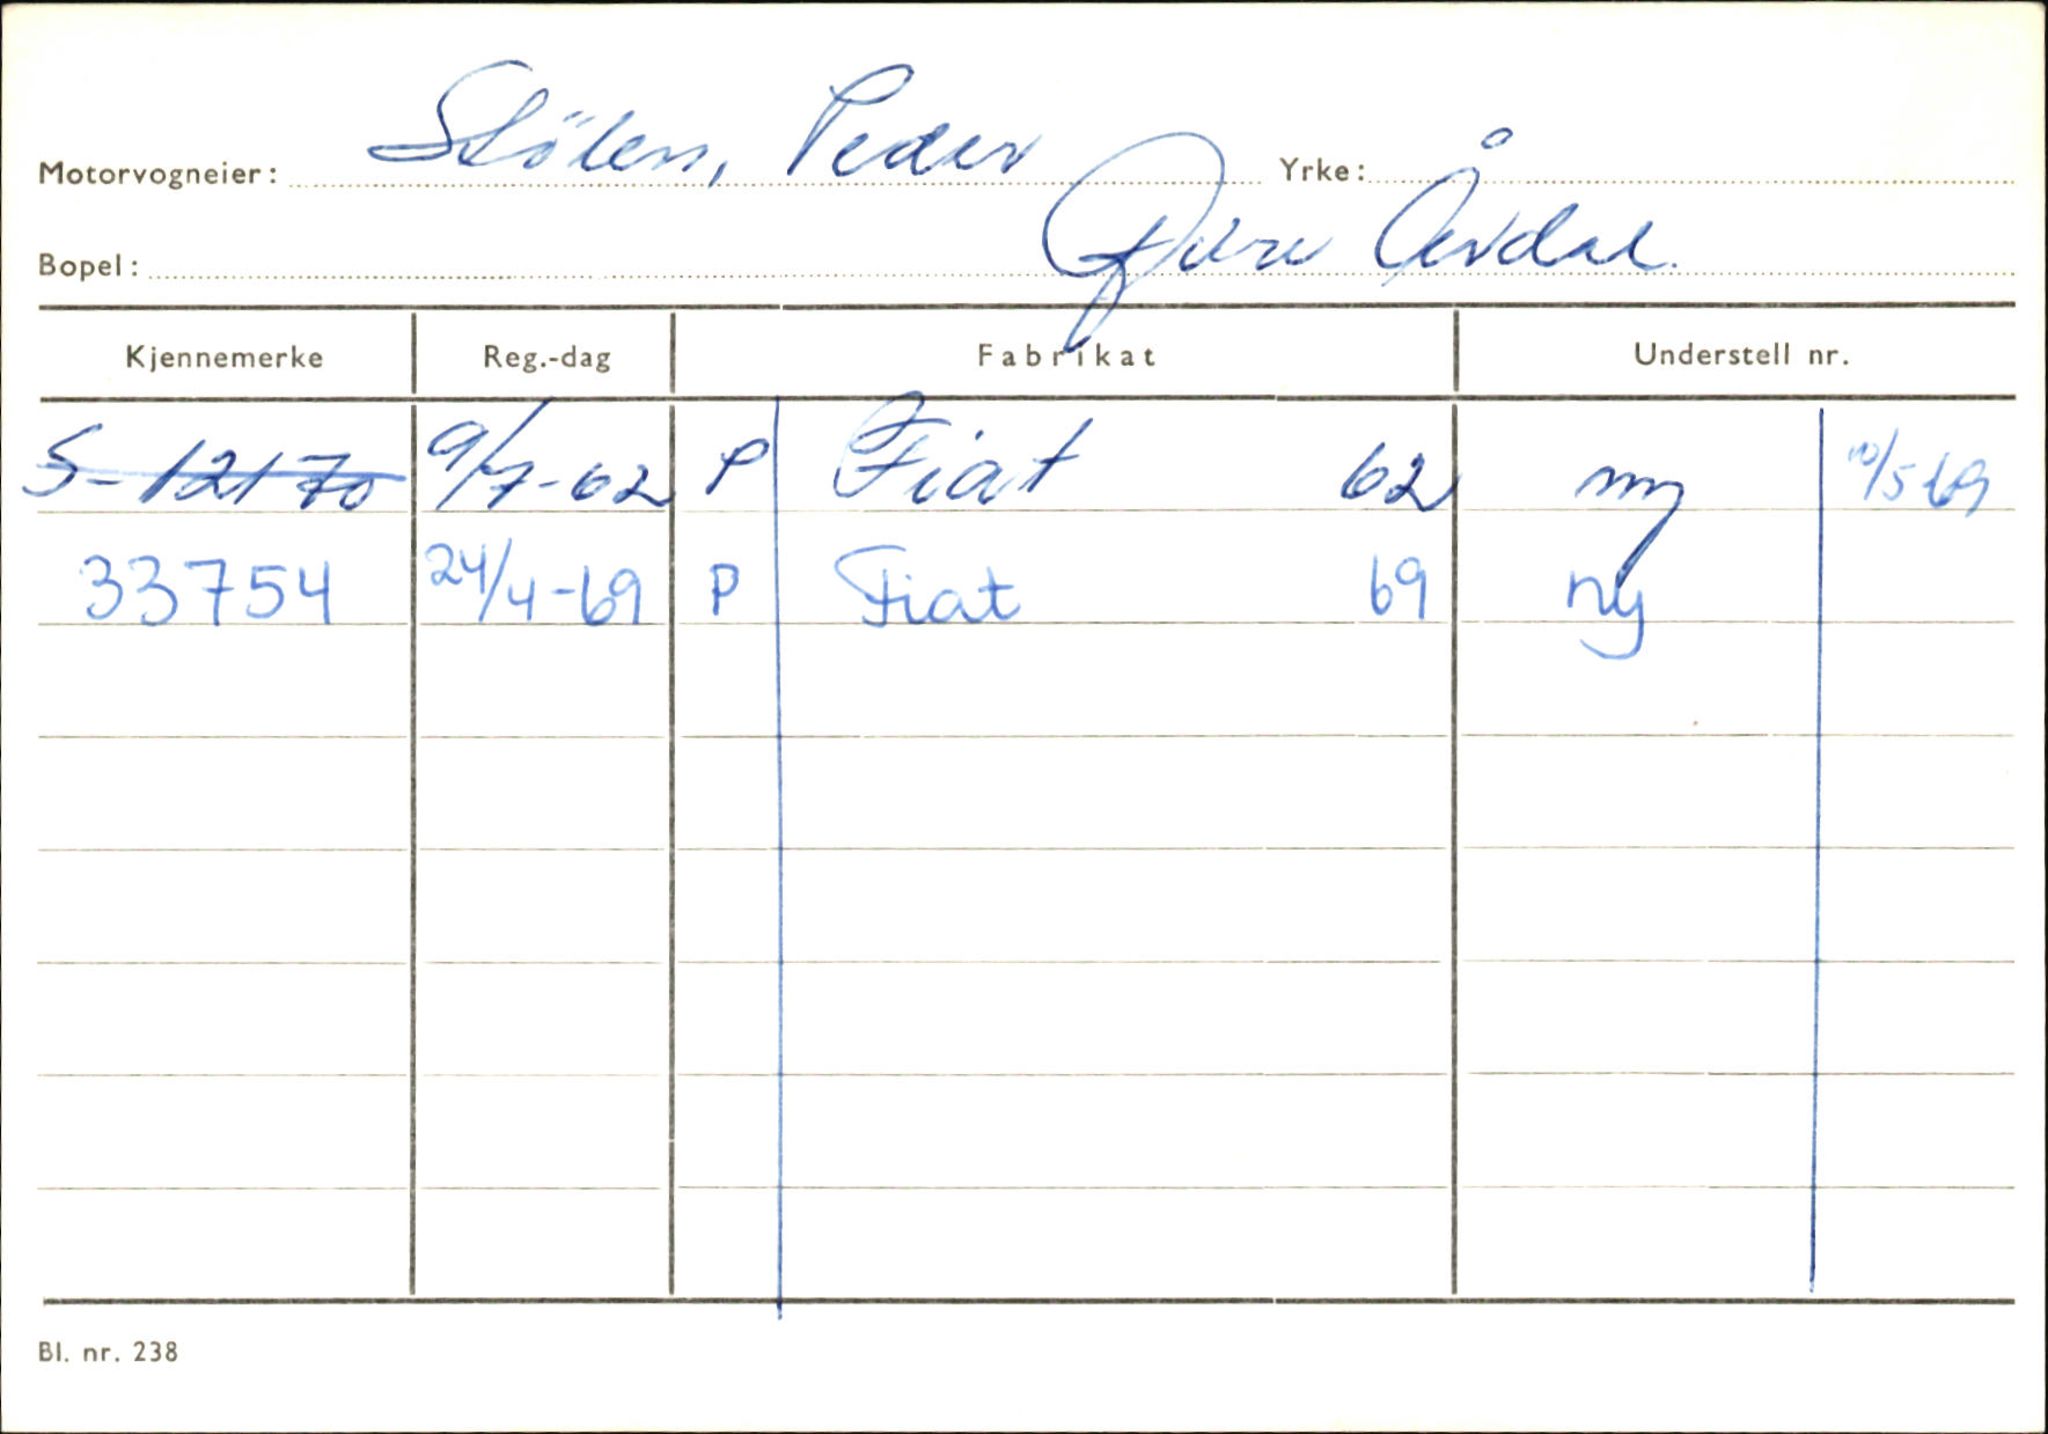 Motorvogneier: Stölen, Peder Yrke:
Bopel: Årdal
Kjennemerke Reg.-dag Fabrikat Understell nr.
S-12170 9/7-62 P Fiat 62 ny 10/5 69
33754 24/4-69 P Fiat 69 ny
Bl. nr. 238